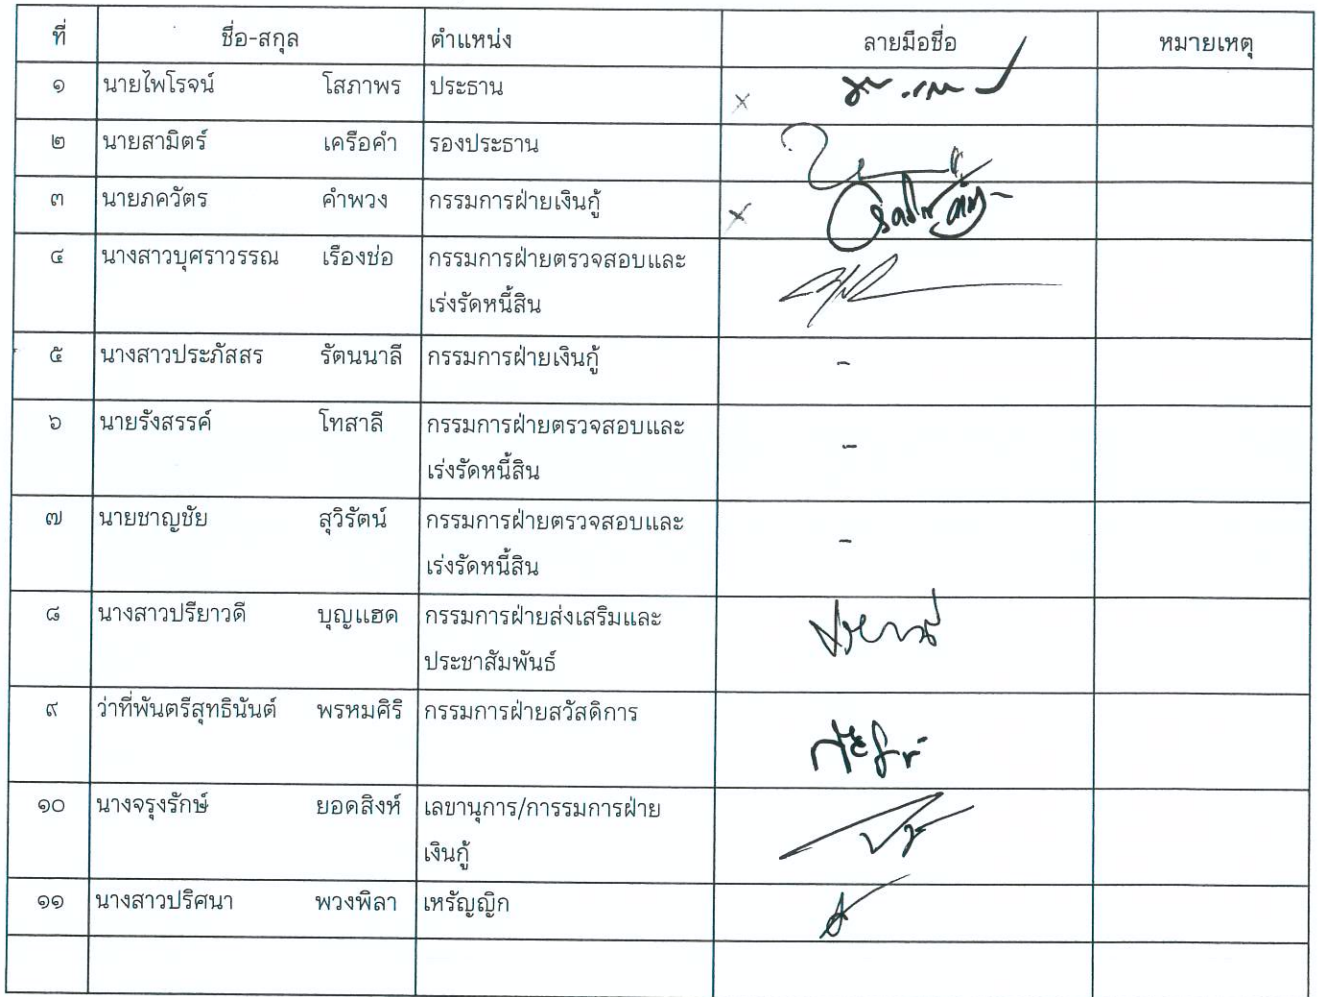 ที่ ชื่อ-สกุล ตำแหน่ง ลายมือชื่อ หมายเหตุ
๑ นายไพโรจน์ โสภาพร ประธาน
๒ นายสามิตร์ เครือคำ รองประธาน
๓ นายภควัตร คำพวง กรรมการฝ่ายเงินกู้
๔ นางสาวบุศราวรรณ เรืองช่อ กรรมการฝ่ายตรวจสอบและ
เร่งรัดหนี้สิน
๕ นางสาวประภัสสร รัตนนาลี กรรมการฝ่ายเงินกู้ -
๖ นายรังสรรค์ โทสาลี กรรมการฝ่ายตรวจสอบและ -
เร่งรัดหนี้สิน
๗ นายชาญชัย สุวิรัตน์ กรรมการฝ่ายตรวจสอบและ -
เร่งรัดหนี้สิน
๘ นางสาวปรียาวดี บุญแฮด กรรมการฝ่ายส่งเสริมและ
ประชาสัมพันธ์
๙ ว่าที่พันตรีสุทธินันต์ พรหมศิริ กรรมการฝ่ายสวัสดิการ
๑๐ นางจรุงรักษ์ ยอดสิงห์ เลขานุการ/การรมการฝ่าย
เงินกู้
๑๑ นางสาวปริศนา พวงพิลา เหรัญญิก